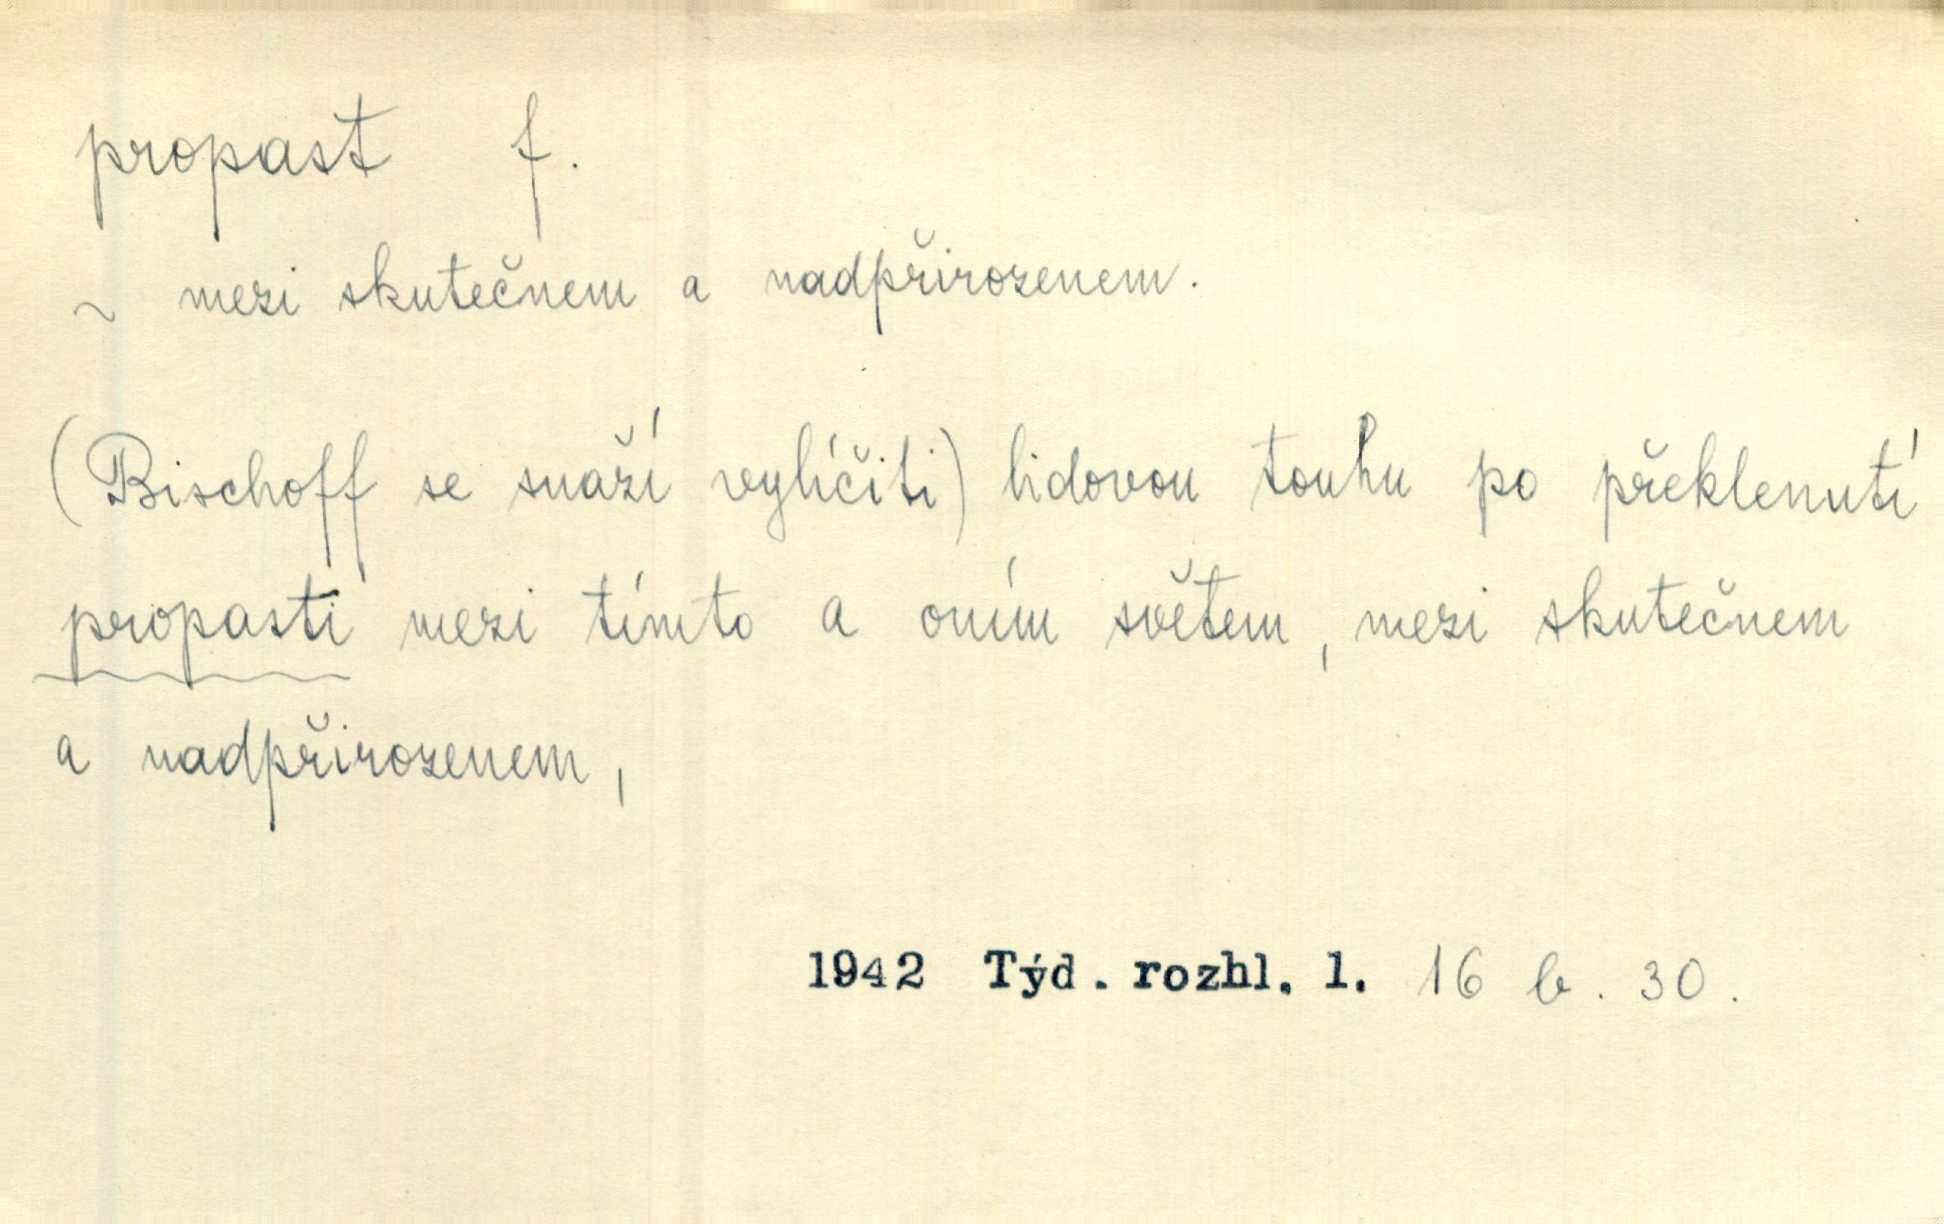 propast f.
~ mezi skutečnem a nadpřirozenem.
(Bischoff se snaží vylíčiti) lidovou touhu po překlenutí
propasti mezi tímto a oním světem, mezi skutečnem
a nadpřirozenem,
1942 Týd. rozhl. 1. 16 b. 30.